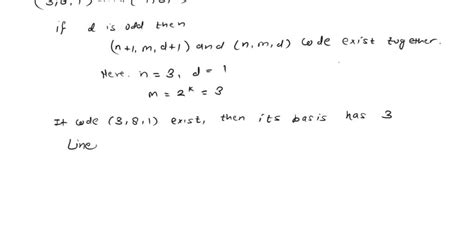 if d is odd then
(n+1, m, d+1) and (n, m, d) code exist together.
Here. n = 3, d = 1
m = 2^k = 3
If code (3, 8, 1) exist, then its basis has 3
Line